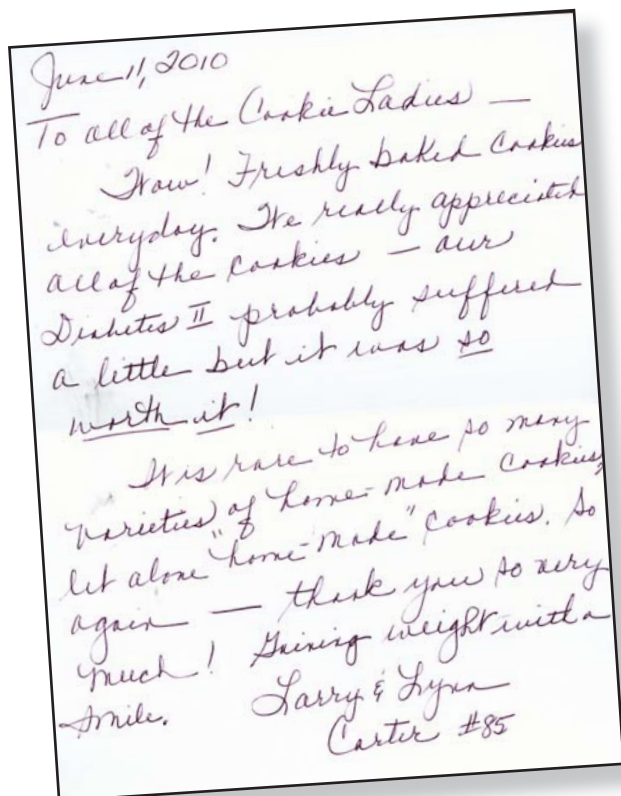 June 11, 2010
To all of the Cookie Ladies —
Wow! Freshly baked cookies
everyday. We really appreciated
all of the cookies — our
Diabetes II probably suffered
a little but it was so
worth it!
It is rare to have so many
varieties of home-made cookies,
let alone "home-made" cookies. So
again — thank you so very
much! Gaining weight with a
smile. Larry & Lynn
Carter #85